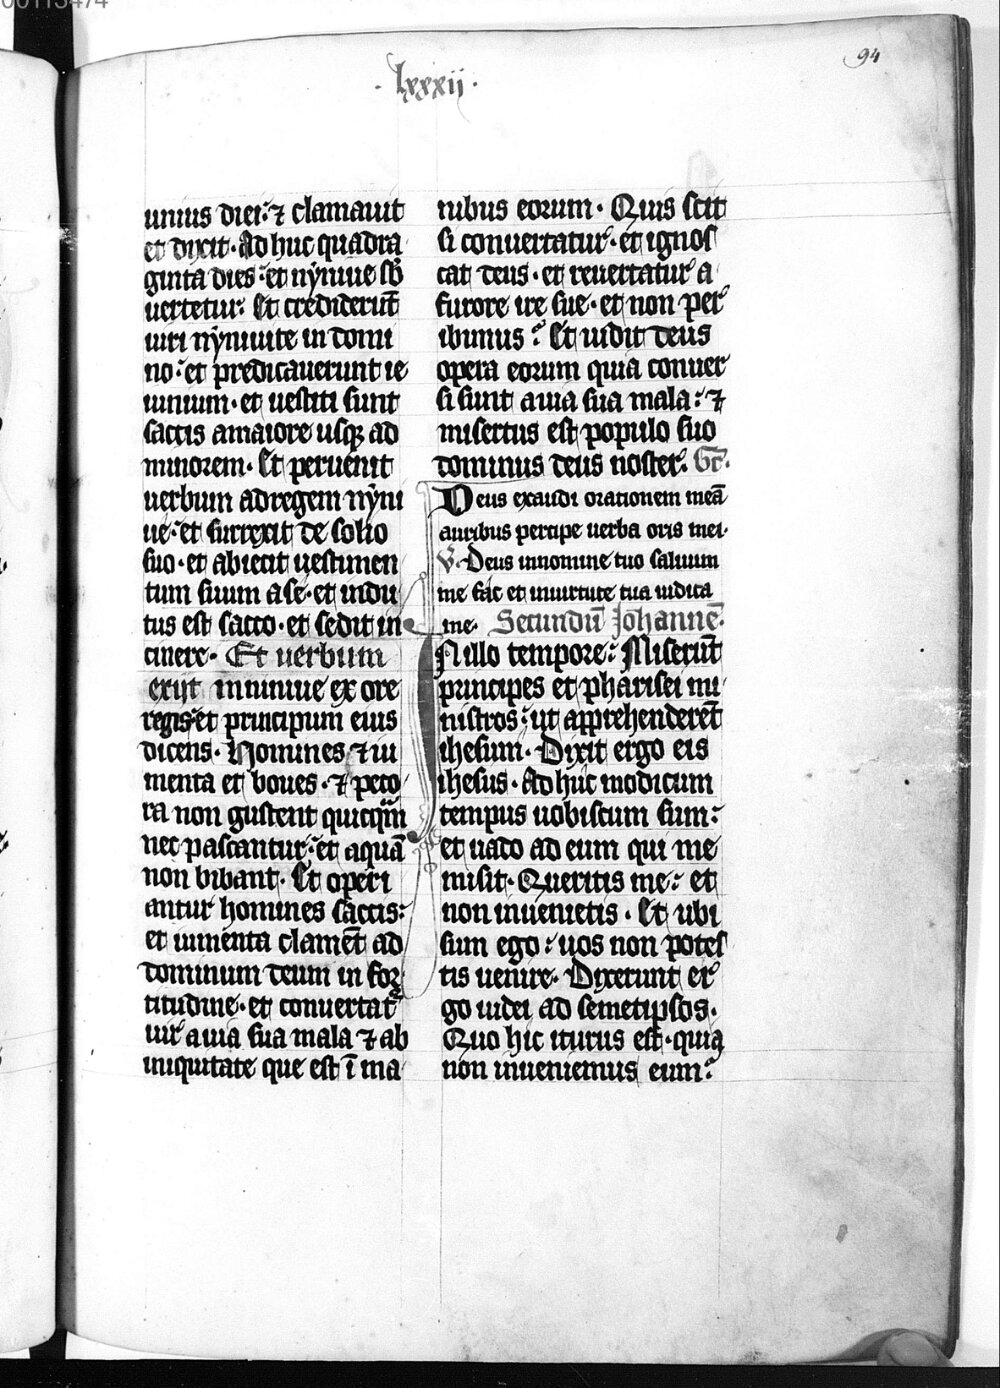 00113474
· lxxxii ·
94
unius diei: ⁊ clamauit
et dixit· Ad huc quadra
ginta dies: et nyniue sb̕
uertetur: Et crediderūt
uiri nyniuite in domi
no: et predicauerunt ie
iunium· et uestiti sunt
saccis amaiore usqꝫ ad
minorem· Et peruenit
uerbum ad regem nyni
ue: et surrexit de solio
suo· et abiecit uestimen
tum suum a se· et indu
tus est sacco· et sedit in
cinere· Et uerbum
exijt in niniue ex ore
regis: et principum eius
dicens· Homines ⁊ iu
menta et boues· ⁊ peco
ra non gustent quicq̄m
nec pascantur: et aquā
non bibant· Et operi
antur homines saccis:
et iumenta clamēt ad
dominum deum in for
titudine· et conuertat᷑
uir a uia sua mala ⁊ ab
iniquitate que est ī ma
nibus eorum· Quis scit
si conuertatur· et ignos
cat deus· et reuertatur a
furore ire sue· et non per
ibimus? Et uidit deus
opera eorum quia conuer
si sunt a uia sua mala: ⁊
misertus est populo suo
dominus deus noster· Gr̄·
Deus exaudi orationem meā
auribus percipe uerba oris mei·
V̷· Deus in nomine tuo saluum
me fac et in uirtute tua iudica
me· Secundū Johannē·
In illo tempore: Miserūt
principes et pharisei mi
nistros: ut apprehenderēt
ihesum· Dixit ergo eis
ihesus· Ad huc modicum
tempus uobiscum sum:
et uado ad eum qui me
misit· Queritis me: et
non inuenietis· Et ubi
sum ego: uos non potes
tis uenire· Dixerunt er
go iudei ad semetipsos·
Quo hic iturus est· quia
non inueniemus eum?